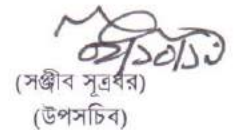 (সঞ্জীব সূত্রধর)
(উপসচিব)